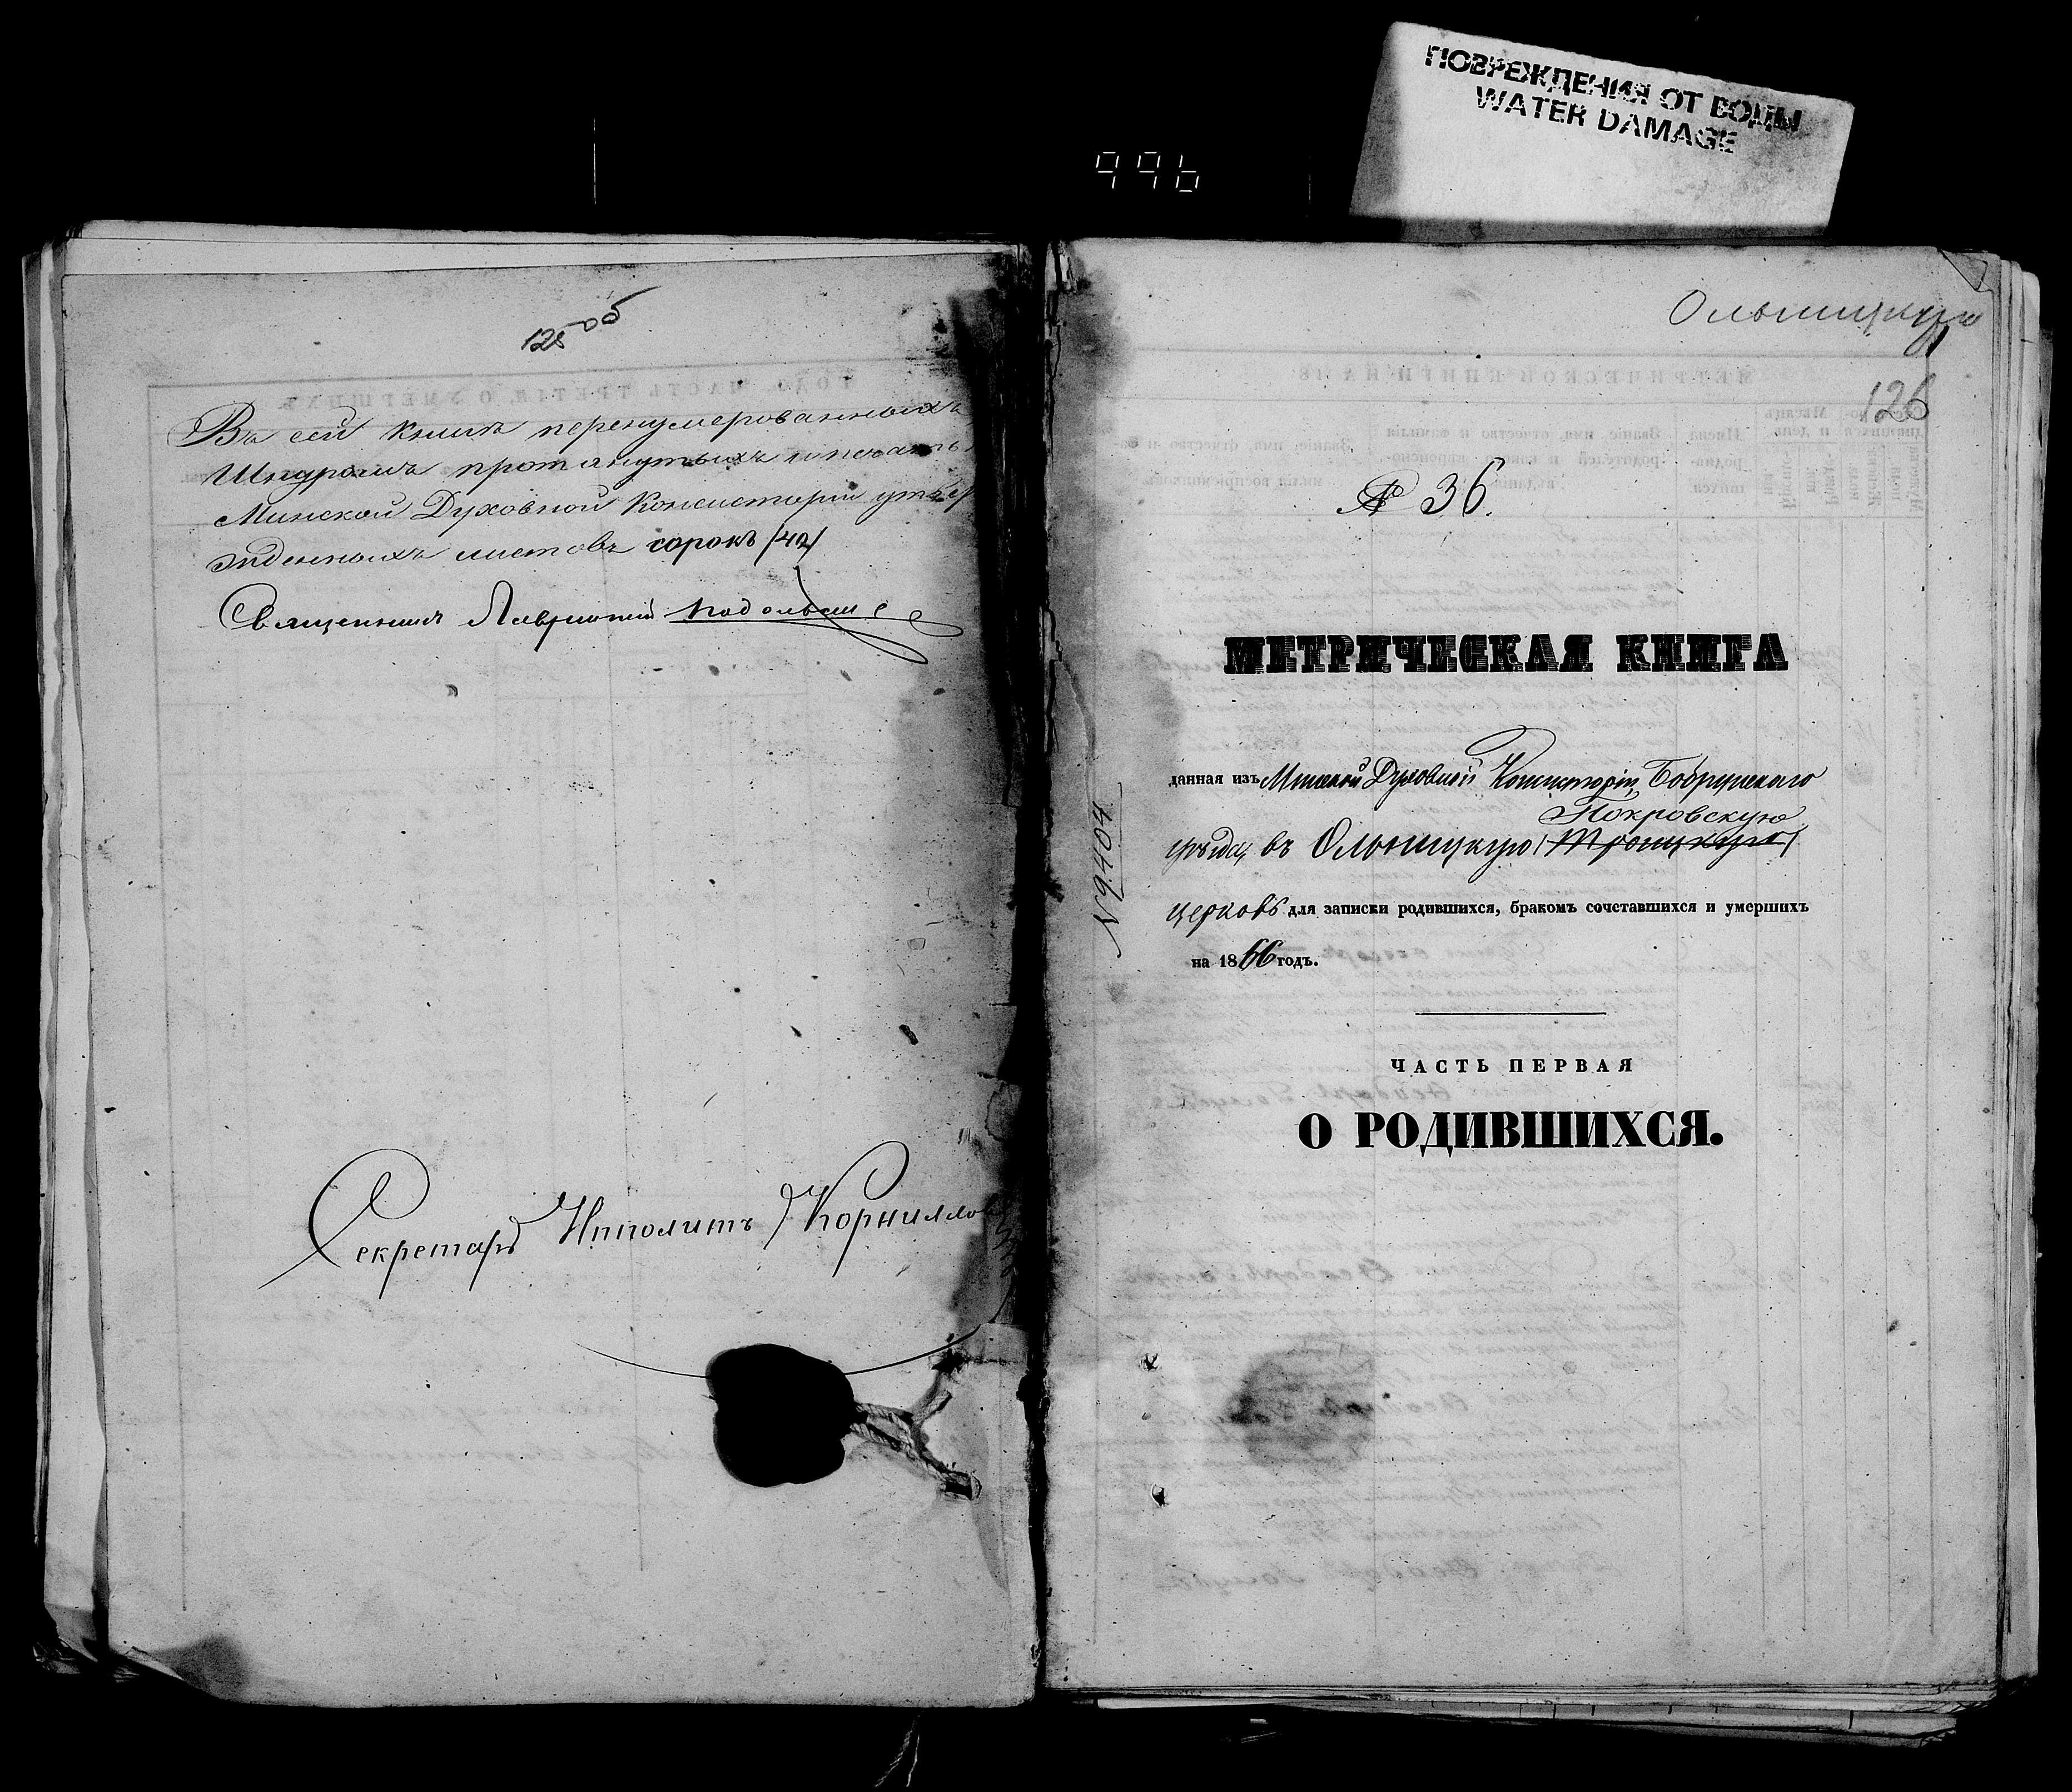 ПОВРЕЖДЕНИЯ ОТ ВОДЫ
WATER DAMAGE
996
125 об
Въ сей книгѣ перенумерованныхъ
Шнуромъ протянутыхъ и печатью
Минской Духовной Консисторіи утвер
жденныхъ листовъ сорокъ /40/
Священникъ Лаврентій
Секретарь Ипполитъ Корнилло
Ольницкую
126
№ 36.
МЕТРИЧЕСКАЯ КНИГА
данная изъ Минской Духовной Консисторіи, Бобруйскаго
Покровскую
уѣзда, въ Ольницкую (Троицкую)
церковь для записки родившихся, бракомъ сочетавшихся и умершихъ
на 1866 годъ.
№ 9404
ЧАСТЬ ПЕРВАЯ
О РОДИВШИХСЯ.